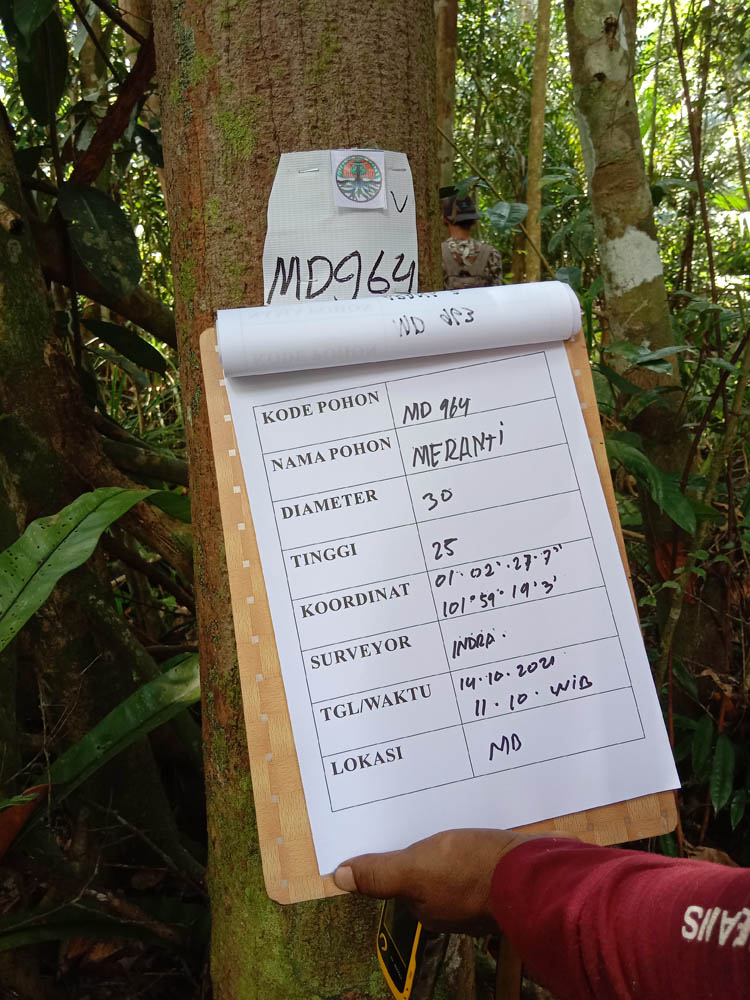 V
MD964
MD 963
KODE POHON MD 964
NAMA POHON MERANTI
DIAMETER 30
TINGGI 25
KOORDINAT 01. 02'. 27. 7"
101° 59' 19' 3'
SURVEYOR INDRA.
TGL/WAKTU 14.10.2021
11. 10. WIB
LOKASI MD